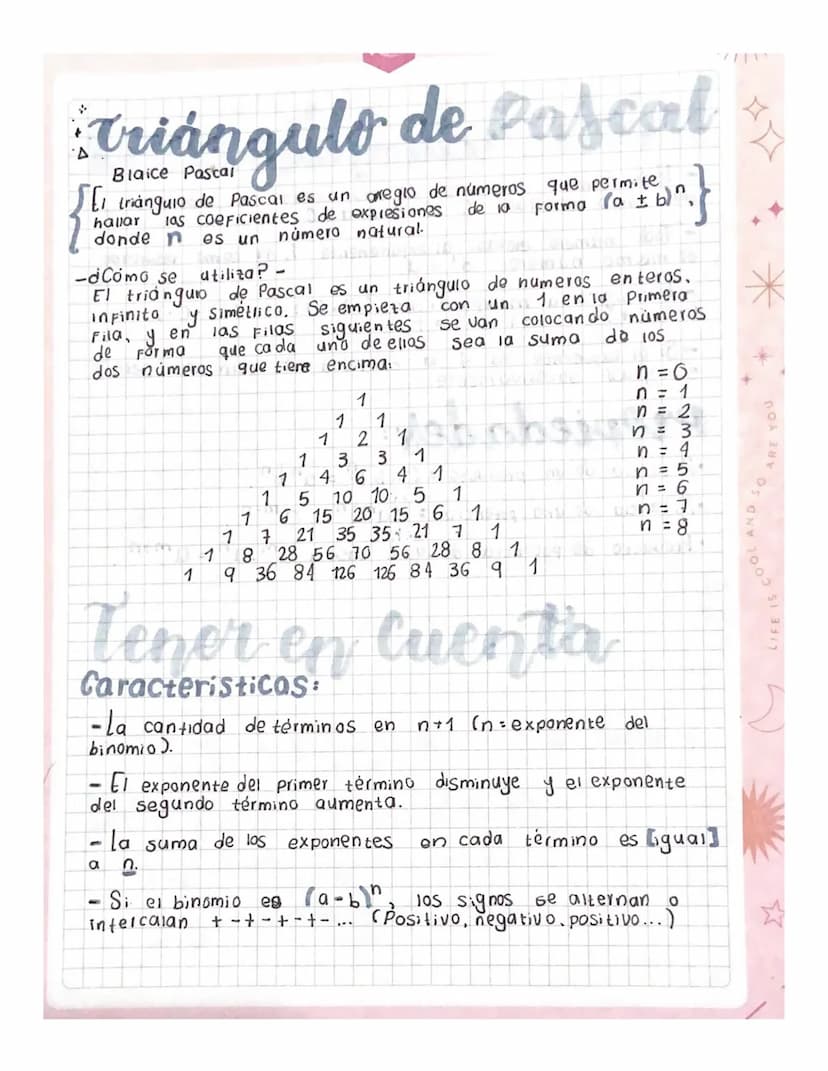 Triángulo de Pascal
Blaice Pascal
{El triángulo de Pascal es un aregio de números que permite
hallar las coeficientes de expresiones de la forma (a ± b)ⁿ,}
donde n es un número natural.
-¿Cómo se utiliza?-
El triángulo de Pascal es un triángulo de numeros enteros,
infinito y simétrico. Se empieza con un 1 en la Primera
Fila, y en las Filas siguientes se van colocando números
de Forma que cada uno de ellos sea la suma de los
dos números que tiene encima.
n = 0
1
n = 1
1 1
n = 2
1 2 1
n = 3
1 3 3 1
n = 4
1 4 6 4 1
n = 5
1 5 10 10 5 1
n = 6
1 6 15 20 15 6 1
n = 7
1 7 21 35 35 21 7 1
n = 8
1 8 28 56 70 56 28 8 1
1 9 36 84 126 126 84 36 9 1
Tener en Cuenta
Características:
-La cantidad de términos en n+1 (n = exponente del
binomio).
- El exponente del primer término disminuye y el exponente
del segundo término aumenta.
- La suma de los exponentes en cada término es [igual]
a n.
- Si el binomio es (a-b)ⁿ, los signos se alternan o
intercalan + - + - + - + - ... (Positivo, negativo, positivo...)
LIFE IS COOL AND SO ARE YOU